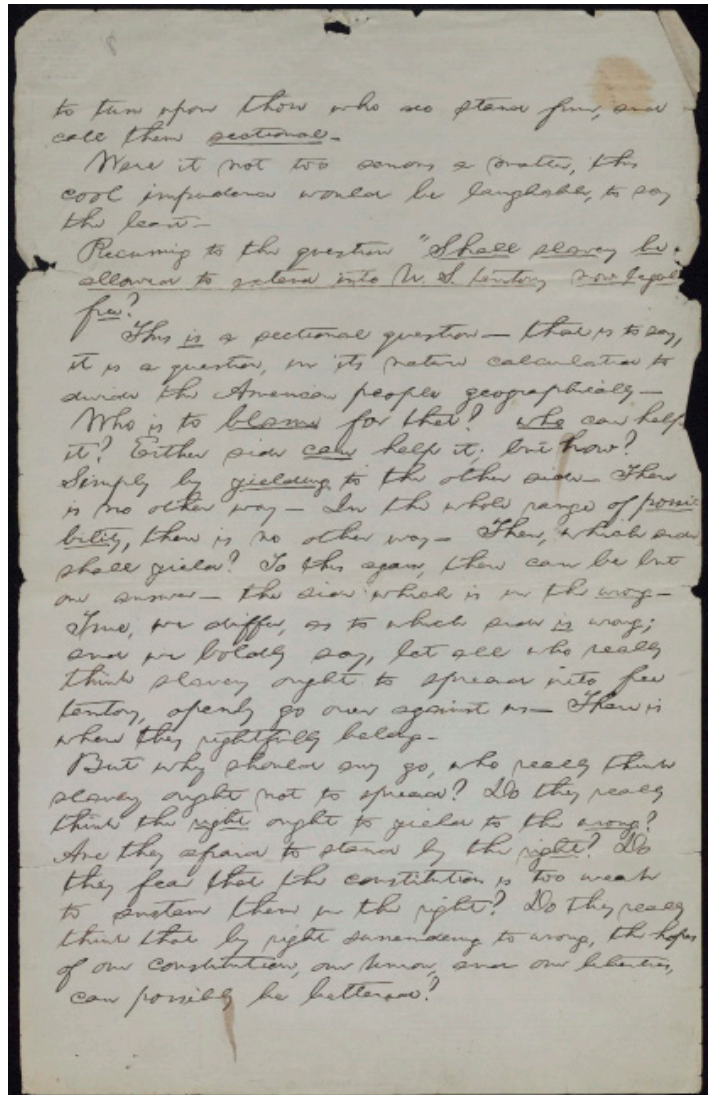 to turn upon those who so stand firm, and
call them sectional—
Were it not too serious a matter, this
cool impudence would be laughable, to say
the least—
Recurring to the question "Shall slavery be
allowed to extend into U. S. teritory now legally
free?
This is a sectional question—that is to say,
it is a question, in its nature calculated to
divide the American people geographically—
Who is to blame for that? who can help
it? Either side can help it; but how?
Simply by yielding to the other side—There
is no other way—In the whole range of possi-
bility, there is no other way—Then, which side
shall yield? To this again, there can be but
one answer—the side which is in the wrong—
True, we differ, as to which side is wrong;
and we boldly say, let all who really
think slavery ought to spread into free
teritory, openly go over against us—There is
where they rightfully belong—
But why should any go, who really think
slavery ought not to spread? Do they really
think the right ought to yield to the wrong?
Are they afraid to stand by the right? Do
they fear that the constitution is too weak
to sustain them in the right? Do they really
think that by right surrendering to wrong, the hopes
of our constitution, our Union, and our liberties,
can possibly be bettered?